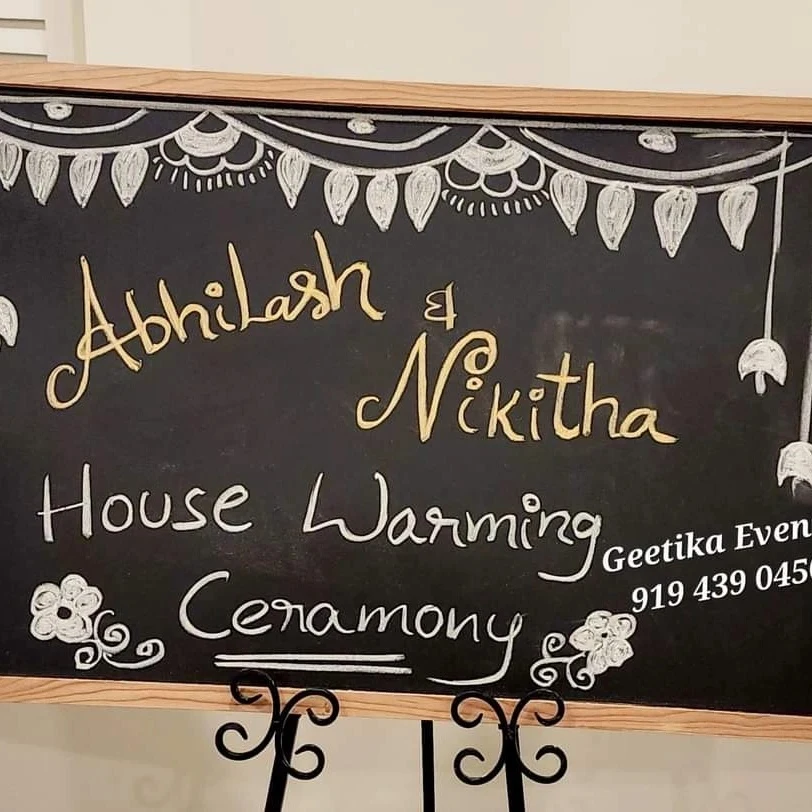 Abhilash &
Nikitha
House Warming
Ceramony
Geetika Even
919 439 045